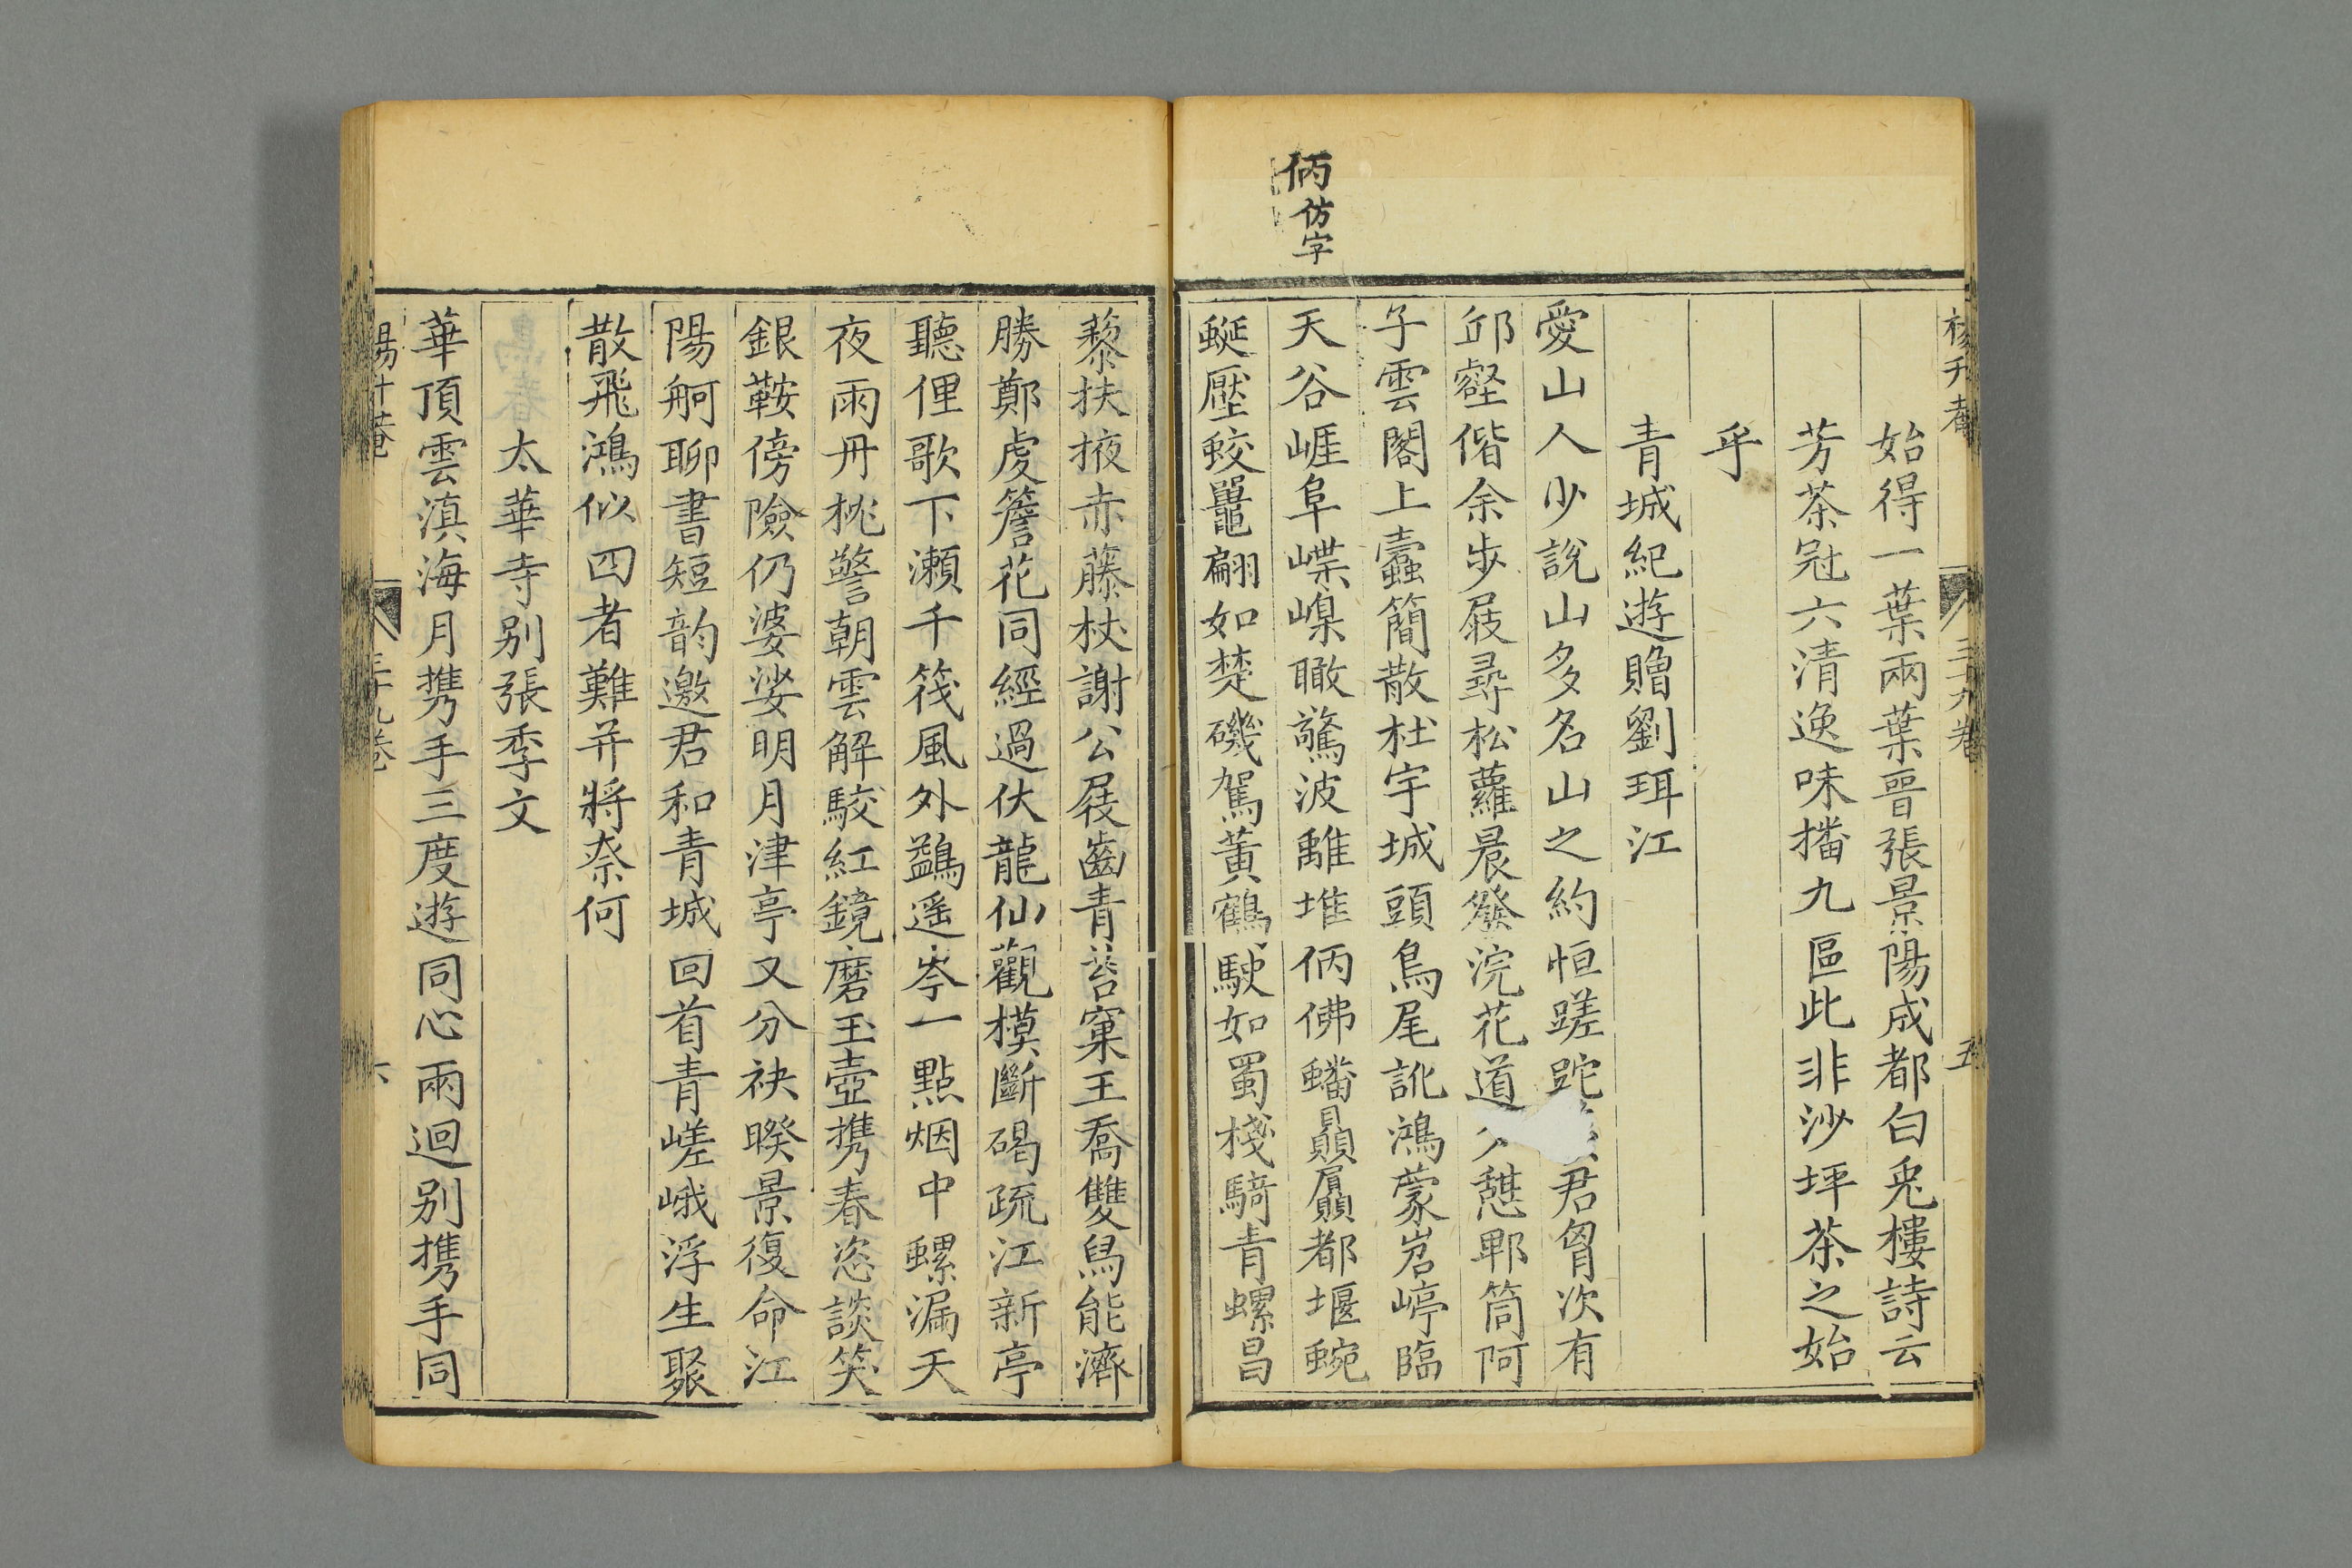 楊升菴
三十九卷
五
始得一葉兩葉晉張景陽成都白兎樓詩云
芳茶冠六清逸味播九區此非沙坪茶之始
乎
青城紀遊贈劉珥江
愛山人少說山多名山之約恒蹉跎君胷次有
邱壑偕余步屐尋松蘿晨發浣花道憇郫筒阿
子雲閣上蠹簡散杜宇城頭鳥尾訛鴻蒙岧嵉臨
天谷崕阜嵲瞰驚波離堆㑂佛蟠贔屭都堰蜿
蜒壓蛟鼉翩如楚磯駕黃鶴駛如蜀棧騎青螺昌
㑂仿字
藜扶掖赤藤杖謝公屐齒青苔窠王喬雙舄能濟
勝鄭虔簷花同經過伏龍仙觀模斷碣疏江新亭
聽俚歌下瀨千筏風外鷁遥岑一點烟中螺漏天
夜雨丹桃警朝雲解駮紅鏡磨玉壺携春恣談笑
銀鞍傍險仍婆娑明月津亭又分袂暌景復命江
陽舸聊書短韵邀君和青城回首青嵯峨浮生聚
散飛鴻似四者難并將奈何
太華寺别張季文
華頂雲滇海月携手三度遊同心兩迴别携手同
楊升菴
三十九卷
六